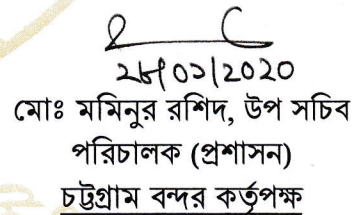 ২৮/০১/2020
মোঃ মমিনুর রশিদ, উপ সচিব
পরিচালক (প্রশাসন)
চট্টগ্রাম বন্দর কর্তৃপক্ষ